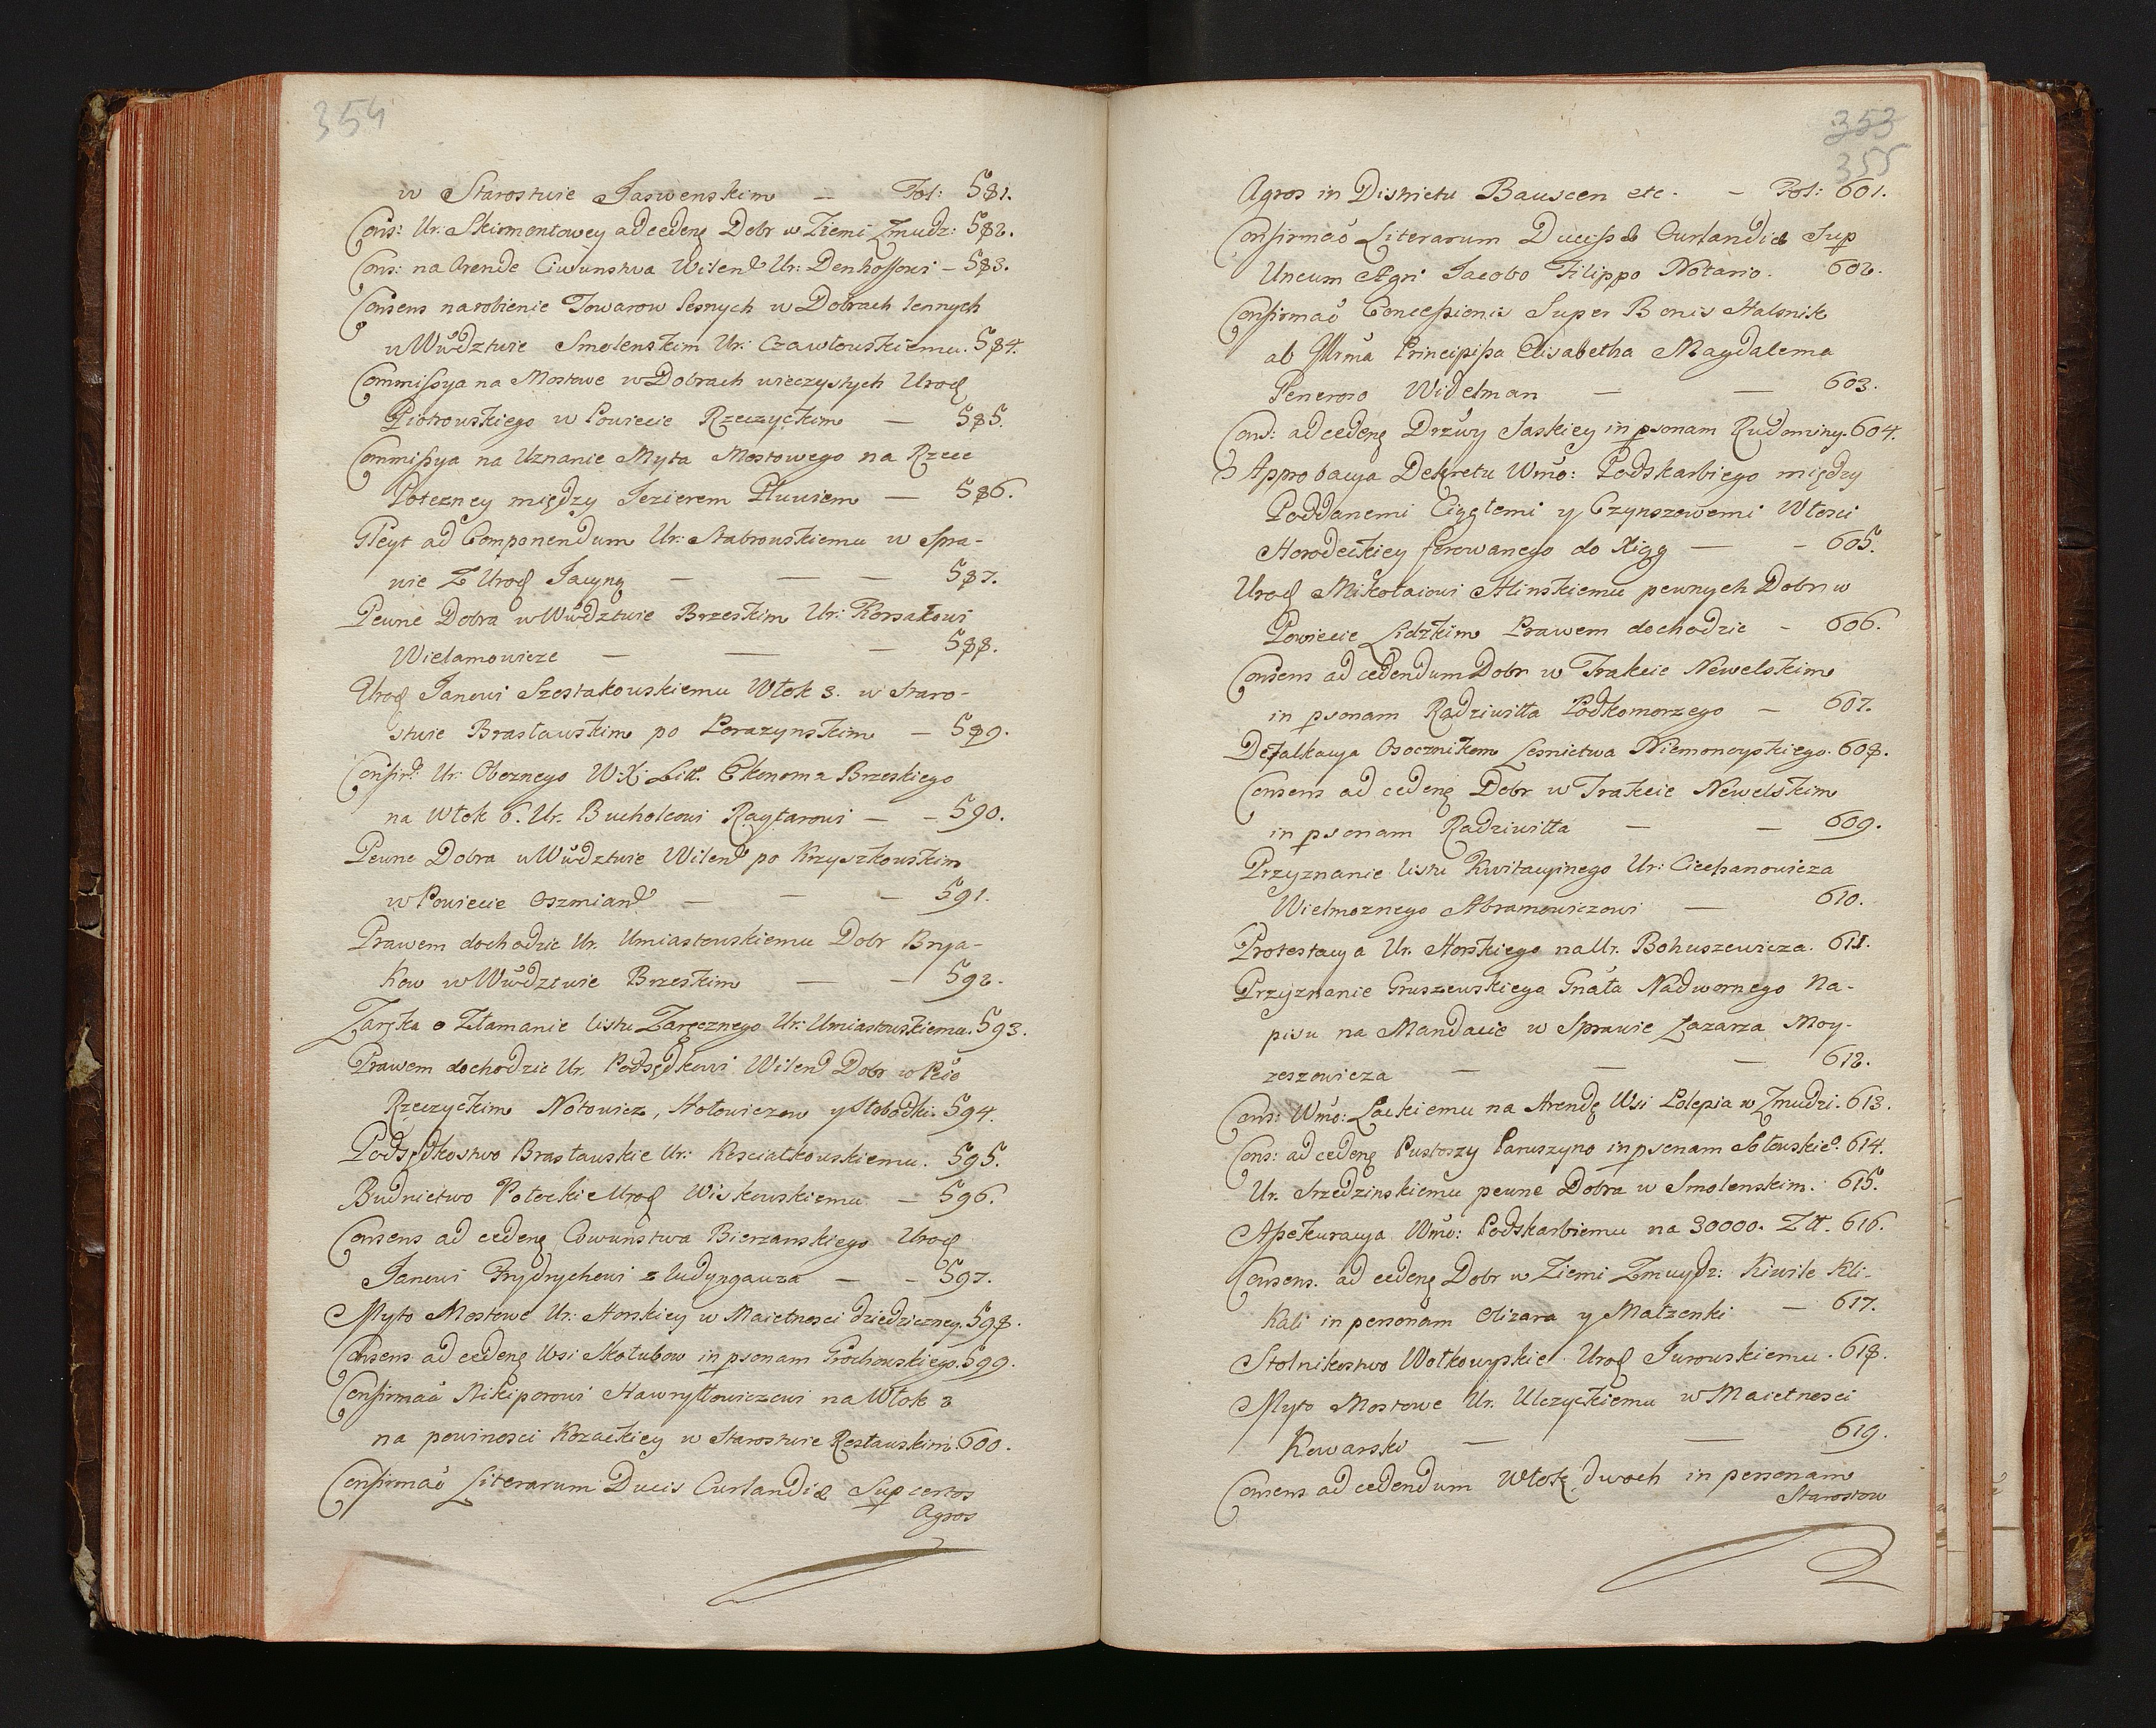 354
w Starostwie Jaswenskim — Fol: 581.
Cons: Ur: Skirmontowey ad cedeng Dobr w Ziemi Zmudz: 582.
Cons: na Arende Ciwunstwa Wilen Ur: Denhoffowi — 583.
Consens na robienie Towarow lesnych w Dobrach lennych
w Wwdztwie Smolenskim Ur: Czawłouskiemu. 584.
Commissya na Mostowe w Dobrach wieczystych Urod
Piotrowskiego w Powiecie Rzeczyckim — 585.
Commissya na Uznanie Myta Mostowego na Rzece
Potezney między Jezierem Pluwiem — 586.
Gleyt ad Componendum Ur: Stabrouskiemu w Spra-
wie z Urod Jacyną — — — 587.
Pewne Dobra w Wwdztwie Brzeskim Ur: Korsakowi
Wielamowicze — — — 588.
Urod Janowi Szostakouskiemu Włok 3. w Staro-
stwie Brasławskim po Porazynskim — 589.
Confir: Ur: Oboznego W: X: Litt: Ekonoma Brzeskiego
na Włok 6. Ur. Bucholcowi Raytarowi — — 590.
Pewne Dobra w Wwdztwie Wilen po Krzyszkouskim
w Powiecie Oszmian — — — 591.
Prawem dochodzic Ur. Umiastouskiemu Dobr Brya-
kow w Wwdztwie Brzeskim — — 592.
Zaręka o Złamanie listu Zaręcznego Ur: Umiastouskiemu. 593.
Prawem dochodzic Ur. Podsędkowi Wilen Dobr w Pcie
Rzeczyckim Notowicz, Hołowiczow y Słobodki. 594.
Podsędkostwo Brasławskie Ur: Kosciałkouskiemu. 595.
Budnictwo Połockie Urod Wiskouskiemu — 596.
Consens ad cedeng Cywunstwa Bierzanskiego Urod
Janowi Frydrychowi z ludyngauza — — 597.
Myto Mostowe Ur: Horskiey w Maietnosci dziedziczney. 598.
Consens ad cedeng Wsi Skołubow in psonam Grochowskiego. 599.
Confirmaó Nikiporowi Hawryłłowiczowi na Włok 2
na powinosci Kozackiey w Starostwie Rosławskim. 600.
Confirmaó Literarum Ducis Curlandiæ Sup certos
Agros
353
355
Agros in Districtu Bauscen etc. — Fol: 601.
Confirmaó Literarum Ducissæ Curlandiæ Sup
Uncum Agri Jacobo Filippo Notario. 602.
Confirmaó Concessionis Super Bonis Halsnik
ab Illrma Principissa Elisabetha Magdalena
Generoso Widelman — — 603.
Cons: ad cedeng Drzwy Saskiey in psonam Rudominy. 604.
Approbacya Dekretu Wmo: Podskarbiego między
Poddanemi Ciągłemi y Czynszowemi Włosci
Horodeckiey ferowanego do Xiąg — — 605.
Urod Mikołaiowi Hlinskiemu pewnych Dobr w
Powiecie Lidzkim Prawem dochodzic — 606.
Consens ad cedendum Dobr w Trakcie Newelskim
in psonam Radziwiłła Podkomorzego — 607.
Defalkacya Osocznikom Lesnictwa Niemonoyskiego. 608.
Consens ad cedeng Dobr w Trakcie Newelskim
in psonam Radziwiłła — — 609.
Przyznanie listu Kwitacyinego Ur: Ciechanowicza
Wielmoznego Abramowiczowi — 610.
Protestacya Ur. Horskiego na Ur. Bohuszewicza. 611.
Przyznanie Gruszewskiego Gnała Nadwornego Na-
pisu na Mandacie w Sprawie Łazarza Moy-
zeszowicza — — — 612.
Cons: Wmo: Packiemu na Arendę Wsi Polepia w Zmudzi. 613.
Cons: ad cedeng Pustoszy Paruszyno in psonam Słouskieo. 614.
Ur. Srzedzinskiemu pewne Dobra w Smolenskim. 615.
Assekuracya Wmo: Podskarbiemu na 30000. Zł. 616.
Consens. ad cedeng Dobr w Ziemi Zmuydz: Kiwile Kli-
kali in personam Olizara y Małzenki — 617.
Stolnikostwo Wołkowyskie Urod Jurouskiemu. 618.
Myto Mostowe Ur. Ulczyckiemu w Maietnosci
Kowarsko — — 619.
Consens ad cedendum Włok dwoch in personam
Starostow